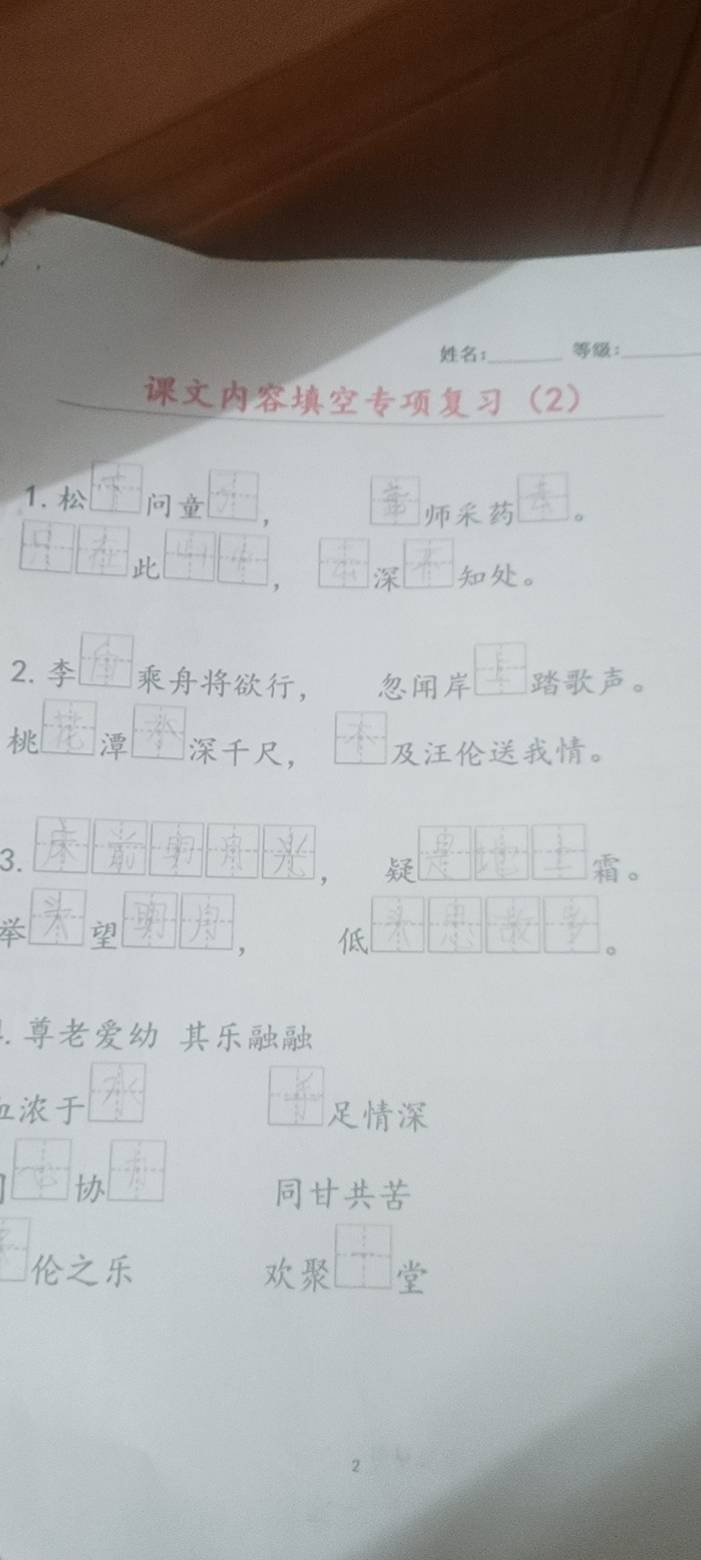 姓名：______ 等级：______
课文内容填空专项复习（2）
1. 松下问童子， 言师采药去。
只在此山中， 云深不知处。
2. 李白乘舟将欲行， 忽闻岸上踏歌声。
桃花潭水深千尺， 不及汪伦送我情。
3. 床前明月光， 疑是地上霜。
举头望明月， 低头思故乡。
. 尊老爱幼 其乐融融
浓于水 手足情深
心协力 同甘共苦
伦之乐 欢聚一堂
2